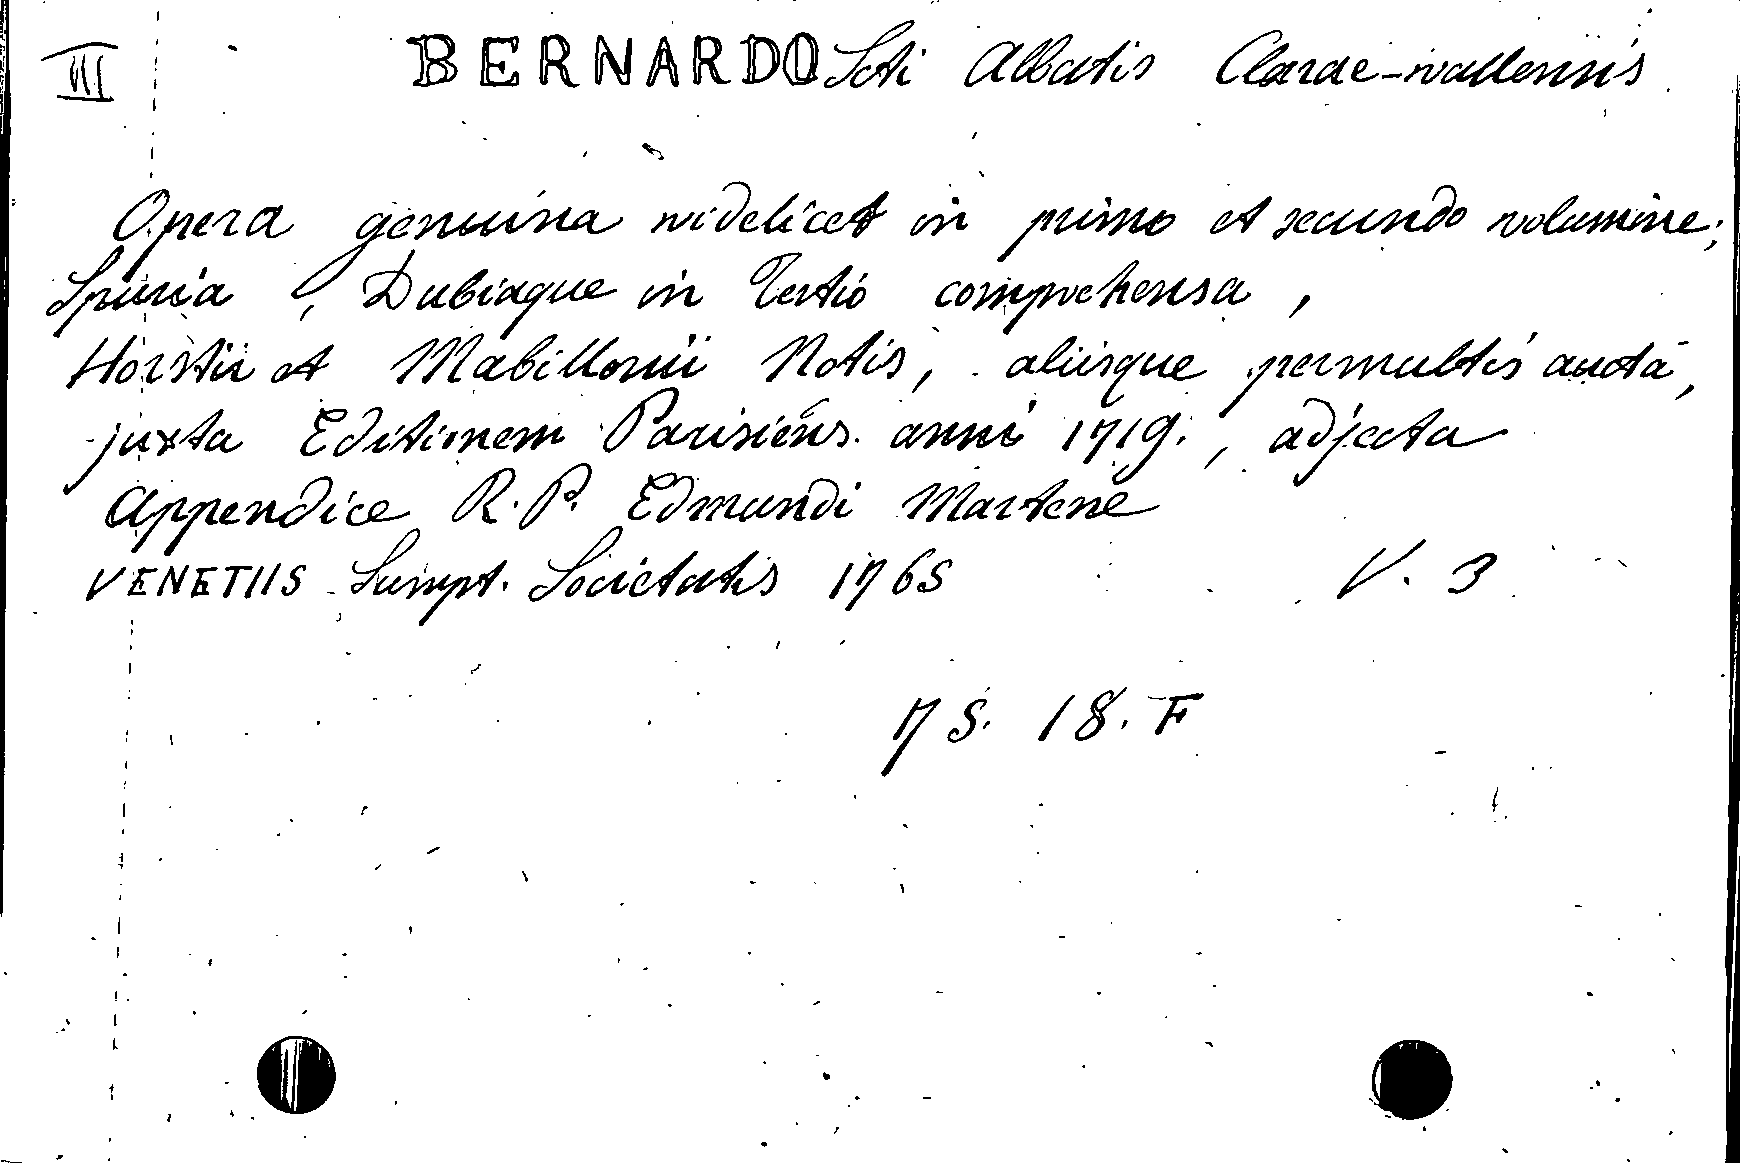 III BERNARDO Scti Abbatis Clarae-vallensis
Opera genuina videlicet in primo et secundo volumine;
Spuria, Dubiaque in Tertio comprehensa,
Horstii et Mabillonii Notis, aliisque permultis aucta,
juxta Editionem Parisiens. anni 1719., adjecta
Appendice R. P. Edmundi Martene
VENETIIS Sumpt. Societatis 1765 V. 3
75. 18. F